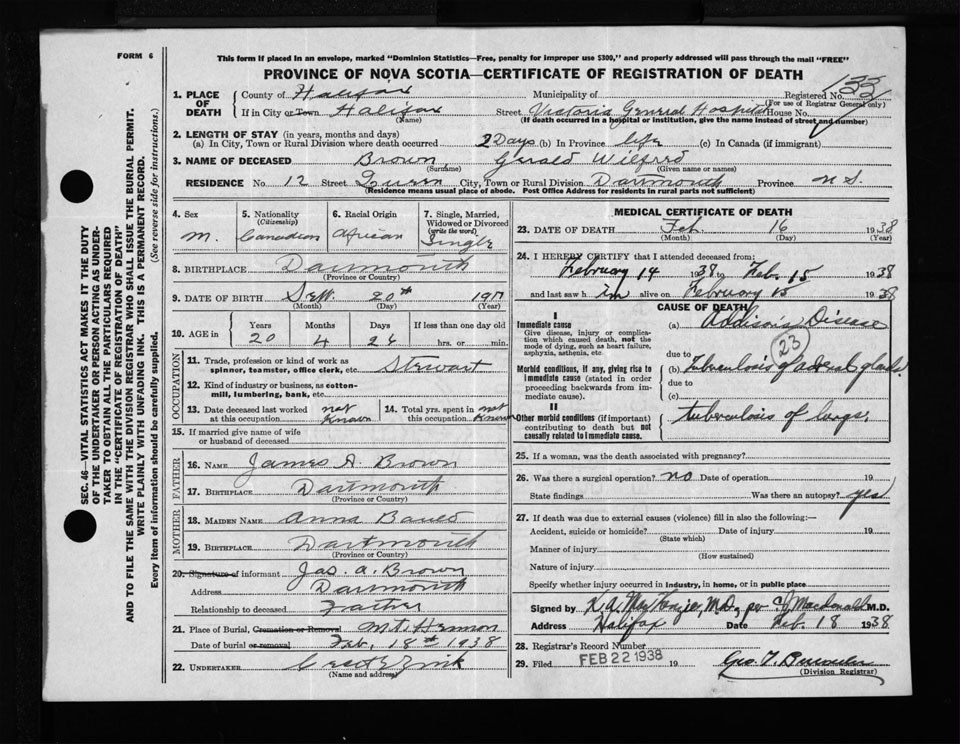 FORM 6
This form if placed in an envelope, marked "Dominion Statistics—Free, penalty for improper use $300," and properly addressed will pass through the mail "FREE"
PROVINCE OF NOVA SCOTIA—CERTIFICATE OF REGISTRATION OF DEATH
SEC. 46—VITAL STATISTICS ACT MAKES IT THE DUTY
OF THE UNDERTAKER OR PERSON ACTING AS UNDER-
TAKER TO OBTAIN ALL THE PARTICULARS REQUIRED
IN THE "CERTIFICATE OF REGISTRATION OF DEATH"
AND TO FILE THE SAME WITH THE DIVISION REGISTRAR WHO SHALL ISSUE THE BURIAL PERMIT.
WRITE PLAINLY WITH UNFADING INK. THIS IS A PERMANENT RECORD.
Every item of information should be carefully supplied. (See reverse side for instructions.)
1. PLACE OF DEATH County of Halifax Municipality of Registered No. 133
(For use of Registrar General only)
If in City or Town Halifax Street Victoria General Hospital House No.
(Name) (If death occurred in a hospital or institution, give the name instead of street and number)
2. LENGTH OF STAY (in years, months and days)
(a) In City, Town or Rural Division where death occurred 2 Days (b) In Province life (c) In Canada (if immigrant)
3. NAME OF DECEASED Brown, Gerald Wilfred
(Surname) (Given name or names)
RESIDENCE No. 12 Street City, Town or Rural Division Dartmouth Province N.S.
(Residence means usual place of abode. Post Office Address for residents in rural parts not sufficient)
4. Sex M.
5. Nationality (Citizenship) Canadian
6. Racial Origin African
7. Single, Married, Widowed or Divorced (write the word) Single
8. BIRTHPLACE Dartmouth
(Province or Country)
9. DATE OF BIRTH Sept. 20th 1917
(Month) (Day) (Year)
10. AGE in Years Months Days If less than one day old
20 4 26 hrs. or min.
OCCUPATION
11. Trade, profession or kind of work as spinner, teamster, office clerk, etc. Stewart
12. Kind of industry or business, as cotton-mill, lumbering, bank, etc.
13. Date deceased last worked at this occupation not Known
14. Total yrs. spent in this occupation not Known
15. If married give name of wife or husband of deceased
FATHER
16. NAME James A. Brown
17. BIRTHPLACE Dartmouth
(Province or Country)
MOTHER
18. MAIDEN NAME Anna
19. BIRTHPLACE Dartmouth
(Province or Country)
20. Signature of informant Jas. A. Brown
Address Dartmouth
Relationship to deceased Father
21. Place of Burial, Cremation or Removal Mt. Hermon
Date of burial or removal Feb. 18th 1938
22. UNDERTAKER Zink
(Name and address)
MEDICAL CERTIFICATE OF DEATH
23. DATE OF DEATH Feb. 16 1938
(Month) (Day) (Year)
24. I HEREBY CERTIFY that I attended deceased from:
February 14 1938 to Feb. 15 1938
and last saw h im alive on February 15 1938
CAUSE OF DEATH
I
Immediate cause
Give disease, injury or complication which caused death, not the mode of dying, such as heart failure, asphyxia, asthenia, etc.
(a) Addison's Disease
23
due to
Morbid conditions, if any, giving rise to immediate cause (stated in order proceeding backwards from immediate cause).
(b) Tuberculosis of adrenal glands
due to
(c)
II
Other morbid conditions (if important) contributing to death but not causally related to immediate cause.
tuberculosis of lungs.
25. If a woman, was the death associated with pregnancy?
26. Was there a surgical operation? no Date of operation 19
State findings Was there an autopsy? yes
27. If death was due to external causes (violence) fill in also the following:—
Accident, suicide or homicide? Date of injury 19
(State which)
Manner of injury
(How sustained)
Nature of injury
Specify whether injury occurred in industry, in home, or in public place
Signed by K.A. MacKenzie, M.D., per Macdonald M.D.
Address Halifax Date Feb. 18 1938
28. Registrar's Record Number
29. Filed FEB 22 1938 19
Geo. T.
(Division Registrar)